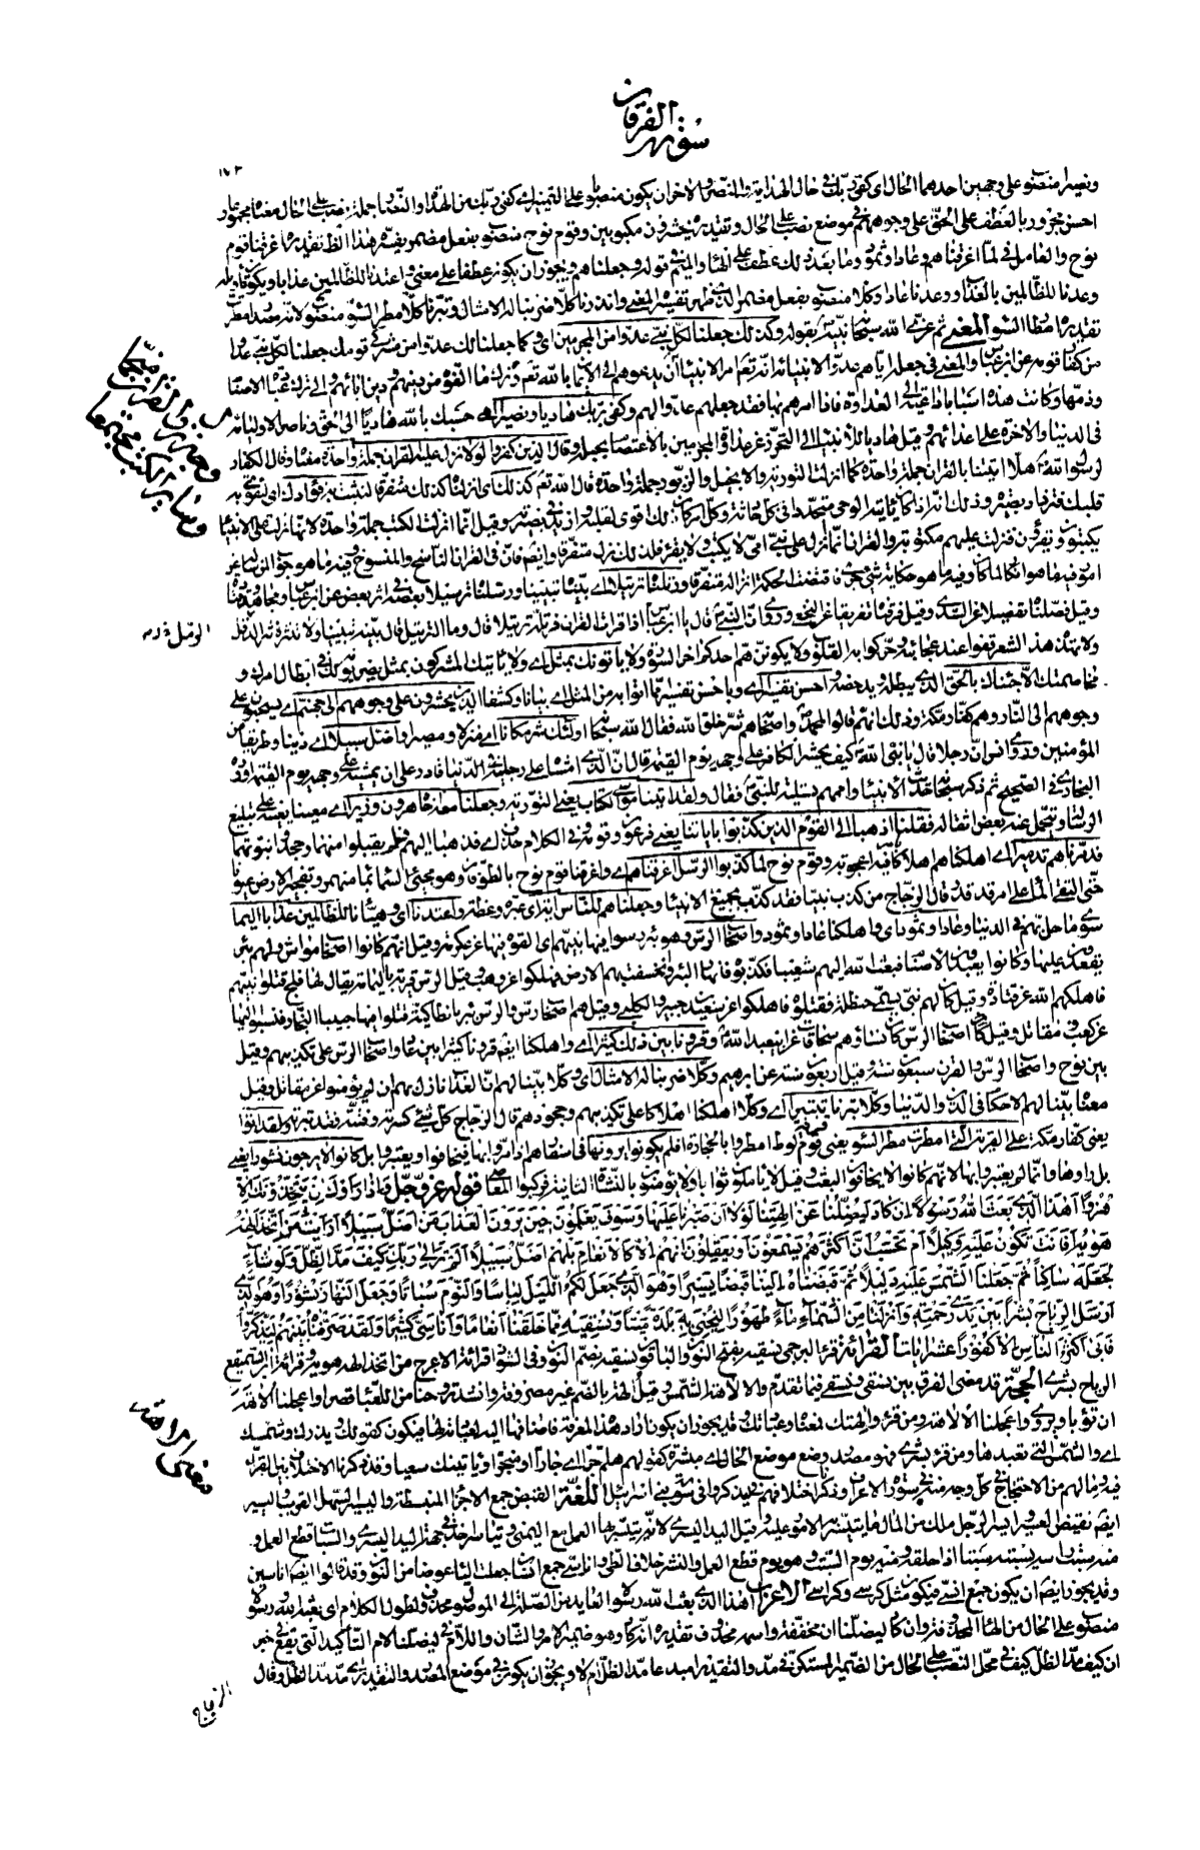 سورة الفرقان
ونصيرا منصوب على وجهين احدهما الحال اى كفى ربك فى حال الهداية والنصر والاخر ان يكون منصوبا على التميز اى كفى ربك من الهداة والنصار جملة نصب على الحال معناه مجموعا
احسن مجرور بالعطف على الحق على وجوههم فى موضع نصب على الحال وتقديره يحشرون مكبوبين وقوم نوح منصوب بفعل مضمر يفسره هذا الظاهر تقديره اغرقنا قوم
نوح والعامل فى لما اغرقناهم وعادا وثمود وما بعد ذلك عطف على الهاء والميم فى قوله وجعلناهم ويجوز ان يكون عطفا على معنى واعتدنا للظالمين عذابا ويكون تاويله
وعدنا للظالمين بالعذاب ووعدنا عادا وكلا منصوب بفعل مضمر الذى ظهر تفسيره المعنى وانذرنا كلا ضربنا له الامثال وتبرنا كلا مطر السوء منصوب لانه مصدر امطرت
تقديره امطار السوء المعنى ثم عزى الله سبحانه نبيه بقوله وكذلك جعلنا لكل نبى عدوا من المجرمين اى وكما جعلنا لك عدوا من مشركى قومك جعلنا لكل نبى عدوا
من كفار قومه عن ابن عباس والمعنى فى جعله اياهم عدو الانبيائه انه تعم امر الانبياء ان يدعوهم الى الايمان بالله تعم وترك ما الفوه من دينهم ودين ابائهم والى ترك عبادة الاصنام
وذمها وكانت هذه اسبابا داعية الى العداوة فاذا امرهم بها فقد جعلهم عدوا لهم وكفى بربك هاديا ونصيرا اى حسبك بالله هاديا الى الحق وناصرا لاوليائه
فى الدنيا والاخرة على اعدائهم وقيل هاديا للانبياء الى التحرز عن عداوة المجرمين بالاعتصام بحبله وقال الذين كفروا لولا نزل عليه القران جملة واحدة معناه وقال الكفار
لرسول الله هلا اتيتنا بالقران جملة واحدة كما انزلت التورية والانجيل والزبور جملة واحدة قال الله تعم كذلك اى انزلناه كذلك متفرقا لنثبت به فؤادك اى لنقوى به
قلبك فتزداد بصيرة وذلك انه اذا كان ياتيه الوحى متجددا فى كل حادثة وكل امر كان ذلك اقوى لقلبه وازيد فى بصيرته وقيل انما انزلت الكتب جملة واحدة لانها نزلت على الانبياء
يكتبون ويقرؤن فنزلت عليهم مكتوبة والقران انما نزل على نبى امى لا يكتب ولا يقرء فلذلك نزل متفرقا وايضم فان فى القران الناسخ والمنسوخ وفيه ما هو جواب لمن سال عن
امور وفيه ما هو انكار لما كان وفيه ما هو حكاية شئ جرى فاقتضت الحكمة انزاله متفرقا ورتلناه ترتيلا اى بيناه تبيينا ورسلناه ترسيلا بعضه فى اثر بعض عن ابن عباس ومجاهد وقتادة
وقيل فصلناه تفصيلا عن السدى وقيل فرقناه تفريقا عن النخعى وروى ان النبى قال يا ابن عباس اذا قرات القران فرتله ترتيلا قال وما الترتيل قال بينه تبيينا ولا تنثره نثر الدقل
ولا تهذه هذ الشعر قفوا عند عجائبه وحركوا به القلوب ولا يكونن هم احدكم اخر السورة ولا ياتونك بمثل اى ولا ياتيك المشركون بمثل يضربونه لك فى ابطال امرك و
مخاصمتك الا جئناك بالحق الذى يبطله ويدحضه واحسن تفسيرا اى وباحسن تفسيرا مما اتوا به من المثل اى بيانا وكشفا الذين يحشرون على وجوههم الى جهنم اى يسحبون على
وجوههم الى النار وهم كفار مكة وذلك انهم قالوا لمحمد واصحابه هم شر خلق الله فقال الله سبحانه اولئك شر مكانا اى منزلا ومصيرا واضل سبيلا اى دينا وطريقا من
المؤمنين وروى انس ان رجلا قال يا نبى الله كيف يحشر الكافر على وجهه يوم القيمة قال ان الذى امشاه على رجليه فى الدنيا قادر على ان يمشيه على وجهه يوم القيمة اورده
البخارى فى الصحيح ثم ذكر سبحانه حديث الانبياء واممهم تسلية للنبى فقال ولقد اتينا موسى الكتاب يعنى التورية وجعلنا معه اخاه هرون وزيرا اى معينا يعينه على تبليغ
الرسالة ويتحمل عنه بعض اثقاله فقلنا اذهبا الى القوم الذين كذبوا باياتنا يعنى فرعون وقومه وفى الكلام حذف اى فذهبا اليهم فلم يقبلوا منهما وجحدوا نبوتهما
فدمرناهم تدميرا اى اهلكناهم اهلاكا فيه اعجوبة وقوم نوح لما كذبوا الرسل اغرقناهم اى واغرقنا قوم نوح بالطوفان وهو مجئ السماء بماء منهمر وتفجير الارض عيونا
حتى التقى الماء على امر قد قدر قال الزجاج من كذب نبيا فقد كذب بجميع الانبياء وجعلناهم للناس اية اى عبرة وعظة واعتدنا اى وهيئانا للظالمين عذابا اليما
سوى ما حل بهم فى الدنيا وعادا وثمود اى واهلكنا عادا وثمود واصحاب الرس وهو بئر رسوا فيها نبيهم اى القوه فيها عن عكرمة وقيل انهم كانوا اصحاب مواش ولهم بئر
يقعدون عليها وكانوا يعبدون الاصنام فبعث الله اليهم شعيبا فكذبوه فانهار البئر وانخسفت بهم الارض فهلكوا عن وهب وقيل الرس قرية باليمامة يقال لها فلج قتلوا نبيهم
فاهلكهم الله عن قتادة وقيل كان لهم نبى يسمى حنظلة فقتلوه فاهلكوا عن سعيد بن جبير والكلبى وقيل هم اصحاب رس والرس بئر بانطاكية قتلوا فيها حبيبا النجار فنسبوا اليها
عن كعب ومقاتل وقيل كان اصحاب الرس كان نساؤهم سحاقات عن ابى عبد الله وقرونا بين ذلك كثيرا اى واهلكنا ايضم قرونا كثيرا بين عاد واصحاب الرس على تكذيبهم وقيل
بين نوح واصحاب الرس والقرن سبعون سنة وقيل اربعون سنة عن ابرهيم وكلا ضربنا له الامثال اى وكلا بينا لهم ان العذاب نازل بهم ان لم يؤمنوا عن مقاتل وقيل
معناه بينا لهم الاحكام فى الدين والدنيا وكلا تبرنا تتبيرا اى وكلا اهلكنا اهلاكا على تكذيبهم وجحودهم قال الزجاج كل شئ كسرته وفتته فقد تبرته ولقد اتوا
يعنى كفار مكة على القرية التى امطرت مطر السوء يعنى قرية قوم لوط امطروا بالحجارة افلم يكونوا يرونها فى اسفارهم اذا مروا بها فيخافوا ويعتبروا بل كانوا لا يرجون نشورا يعنى
بل راوها وانما لم يعتبروا بها لانهم كانوا لا يخافون البعث وقيل لا ياملون ثوابا ولا يؤمنون بالنشاة الثانية فركبوا المعاصى قوله عز وجل واذا راوك ان يتخذونك الا
هزوا اهذا الذى بعث الله رسولا ان كاد ليضلنا عن الهتنا لولا ان صبرنا عليها وسوف يعلمون حين يرون العذاب من اضل سبيلا ارايت من اتخذ الهه
هويه افانت تكون عليه وكيلا ام تحسب ان اكثرهم يسمعون او يعقلون ان هم الا كالانعام بل هم اضل سبيلا الم تر الى ربك كيف مد الظل ولو شاء
لجعله ساكنا ثم جعلنا الشمس عليه دليلا ثم قبضناه الينا قبضا يسيرا وهو الذى جعل لكم الليل لباسا والنوم سباتا وجعل النهار نشورا وهو الذى
ارسل الرياح بشرا بين يدى رحمته وانزلنا من السماء ماء طهورا لنحيى به بلدة ميتا ونسقيه مما خلقنا انعاما واناسى كثيرا ولقد صرفناه بينهم ليذكروا
فابى اكثر الناس الا كفورا عشر ايات القرائة قرء البرجمى نسقيه بفتح النون والباقون نسقيه بضم النون وفى الشواذ قرائة الاعرج من اتخذ الهة هويه وقرائة ابن السميقع
الرياح بشرى الحجة قد مضى الفرق بين نسقى ونسقى فيما تقدم والالاهة الشمس وقيل الهة بالضم غير مصروفة وانشد تروحنا من اللعباء قصرا واعجلنا الالاهة
ان تؤبا ويروى واعجلنا الالاهة ومن قرء والهتك فمعناه وعبادتك وقد يجوز ان يكون اراد هذا المعرفة فاضافها اليه لعبادته لها فيكون كقولك ويذرك وشمسك
اى والشمس التى تعبدها ومن قرء بشرى فهو مصدر وضع موضع الحال اى مبشرة كقولهم هلم جرا اى جارا او منجرا وياتينك سعيا وقد ذكرنا الاختلاف بين القراء
فيه وما لهم من الاحتجاج فى كل وجه منه فى سورة الاعراف وذكر اختلافهم فى ليذكروا فى سورة بنى اسرائيل اللغة القبض جمع الاجزاء المنبسطة واليسير السهل القريب واليسير
ايضم نقيض العسير وايسر الرجل ملك من المال ما يتيسر به الامور عليه وقيل اليد اليسرى لانه يتيسر بها العمل مع اليمنى وتياسر اخذ فى جهة اليد اليسرى والسبات قطع العمل و
منه سبت راسه يسبته سبتا اذا حلقه ومنه يوم السبت وهو يوم قطع العمل والنشر خلاف الطى واناسى جمع انسان جعلت الياء عوضا من النون وقد قالوا ايضا اناسين
وقد يجوز ايضم ان يكون جمع انسى فيكون مثل كرسى وكراسى الاعراب اهذا الذى بعث الله رسولا العائد من الصلة الى الموصول محذوف لطول الكلام اى بعثه الله ورسولا
منصوب على الحال من الهاء المحذوفة وان كاد ليضلنا ان مخففة واسمه محذوف تقديره انه كاد وهو ضمير الامر والشان واللام فى ليضلنا لام التاكيد التى تقع فى خبر
ان كيف مد الظل كيف فى محل النصب على الحال من الضمير المستكن فى مد والتقدير امبدعا مد الظل ام لا ويجوز ان يكون فى موضع المصدر والتقدير اى مد مد الظل وقال
الزجاج